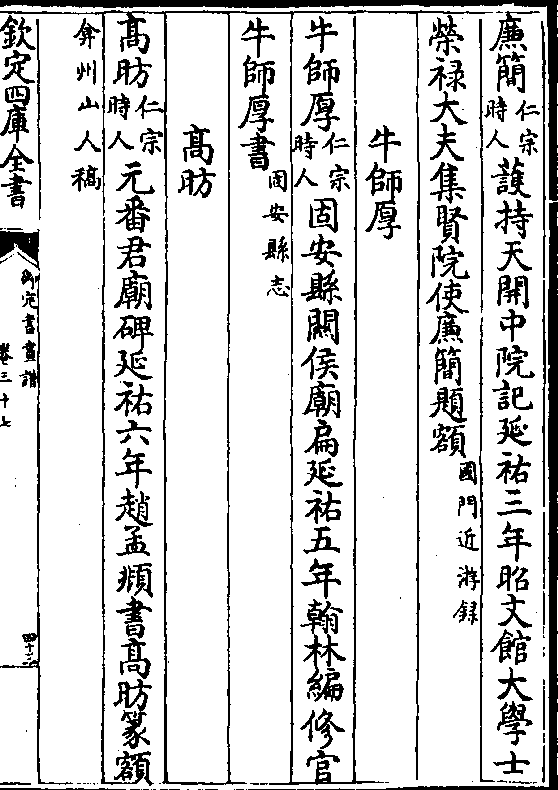 廉簡仁宗時人護持天開中院記延祐三年昭文館大學士
榮禄大夫集賢院使廉簡題額國門近游録
牛師厚
牛師厚仁宗時人固安縣闗侯廟扁延祐五年翰林編修官
牛師厚書固安縣志
髙昉
髙昉仁宗時人元番君廟碑延祐六年趙孟頫書髙昉篆額
弇州山人稿
欽定四庫全書
御定書畫譜
卷三十七
四十三